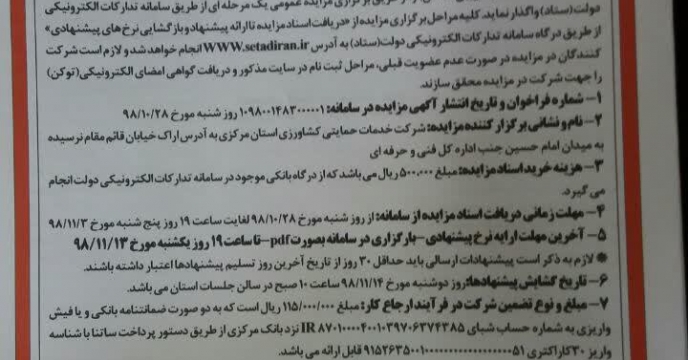 دولت(ستاد) واگذار نماید. کلیه مراحل برگزاری مزایده از دریافت اسناد مزایده تا ارائه پیشنهاد و بازگشایی نرخ های پیشنهادی»
از طریق درگاه سامانه تدارکات الکترونیکی دولت(ستاد) به آدرس WWW.setadiran.ir انجام خواهد شد و لازم است شرکت
کنندگان در مزایده در صورت عدم عضویت قبلی، مراحل ثبت نام در سایت مذکور و دریافت گواهی امضای الکترونیکی(توکن)
را جهت شرکت در مزایده محقق سازند.
۱- شماره فراخوان و تاریخ انتشار آگهی مزایده در سامانه: ۱۰۹۸۰۰۱۴۸۳۰۰۰۰۰۱ روز شنبه مورخ ۹۸/۱۰/۲۸
۲- نام و نشانی برگزار کننده مزایده: شرکت خدمات حمایتی کشاورزی استان مرکزی به آدرس اراک خیابان قائم مقام نرسیده
به میدان امام حسین جنب اداره کل فنی و حرفه ای
۳- هزینه خرید اسناد مزایده: مبلغ ۵۰۰,۰۰۰ ریال می باشد که از درگاه بانکی موجود در سامانه تدارکات الکترونیکی دولت انجام
می گیرد.
۴- مهلت زمانی دریافت اسناد مزایده از سامانه: از روز شنبه مورخ ۹۸/۱۰/۲۸ لغایت ساعت ۱۹ روز پنج شنبه مورخ ۹۸/۱۱/۳
۵- آخرین مهلت ارایه نرخ پیشنهادی-بارگزاری در سامانه بصورت pdf-تا ساعت ۱۹ روز یکشنبه مورخ ۹۸/۱۱/۱۳
* لازم به ذکر است پیشنهادات ارسالی باید حداقل ۳۰ روز از تاریخ آخرین روز تسلیم پیشنهادها اعتبار داشته باشند.
۶- تاریخ گشایش پیشنهادها: روز دوشنبه مورخ ۹۸/۱۱/۱۴ ساعت ۱۰ صبح در سالن جلسات استان می باشد.
۷- مبلغ و نوع تضمین شرکت در فرآیند ارجاع کار: مبلغ ۱۱۵/۰۰۰/۰۰۰ ریال است که به دو صورت ضمانتنامه بانکی و یا فیش
واریزی به شماره حساب شبای IR ۸۷۰۱۰۰۰۰۴۰۰۱۰۳۹۷۰۶۳۷۴۳۸۵ نزد بانک مرکزی از طریق دستور پرداخت ساتنا با شناسه
واریز ۳۰ کاراکتری قابل ارائه می باشد.